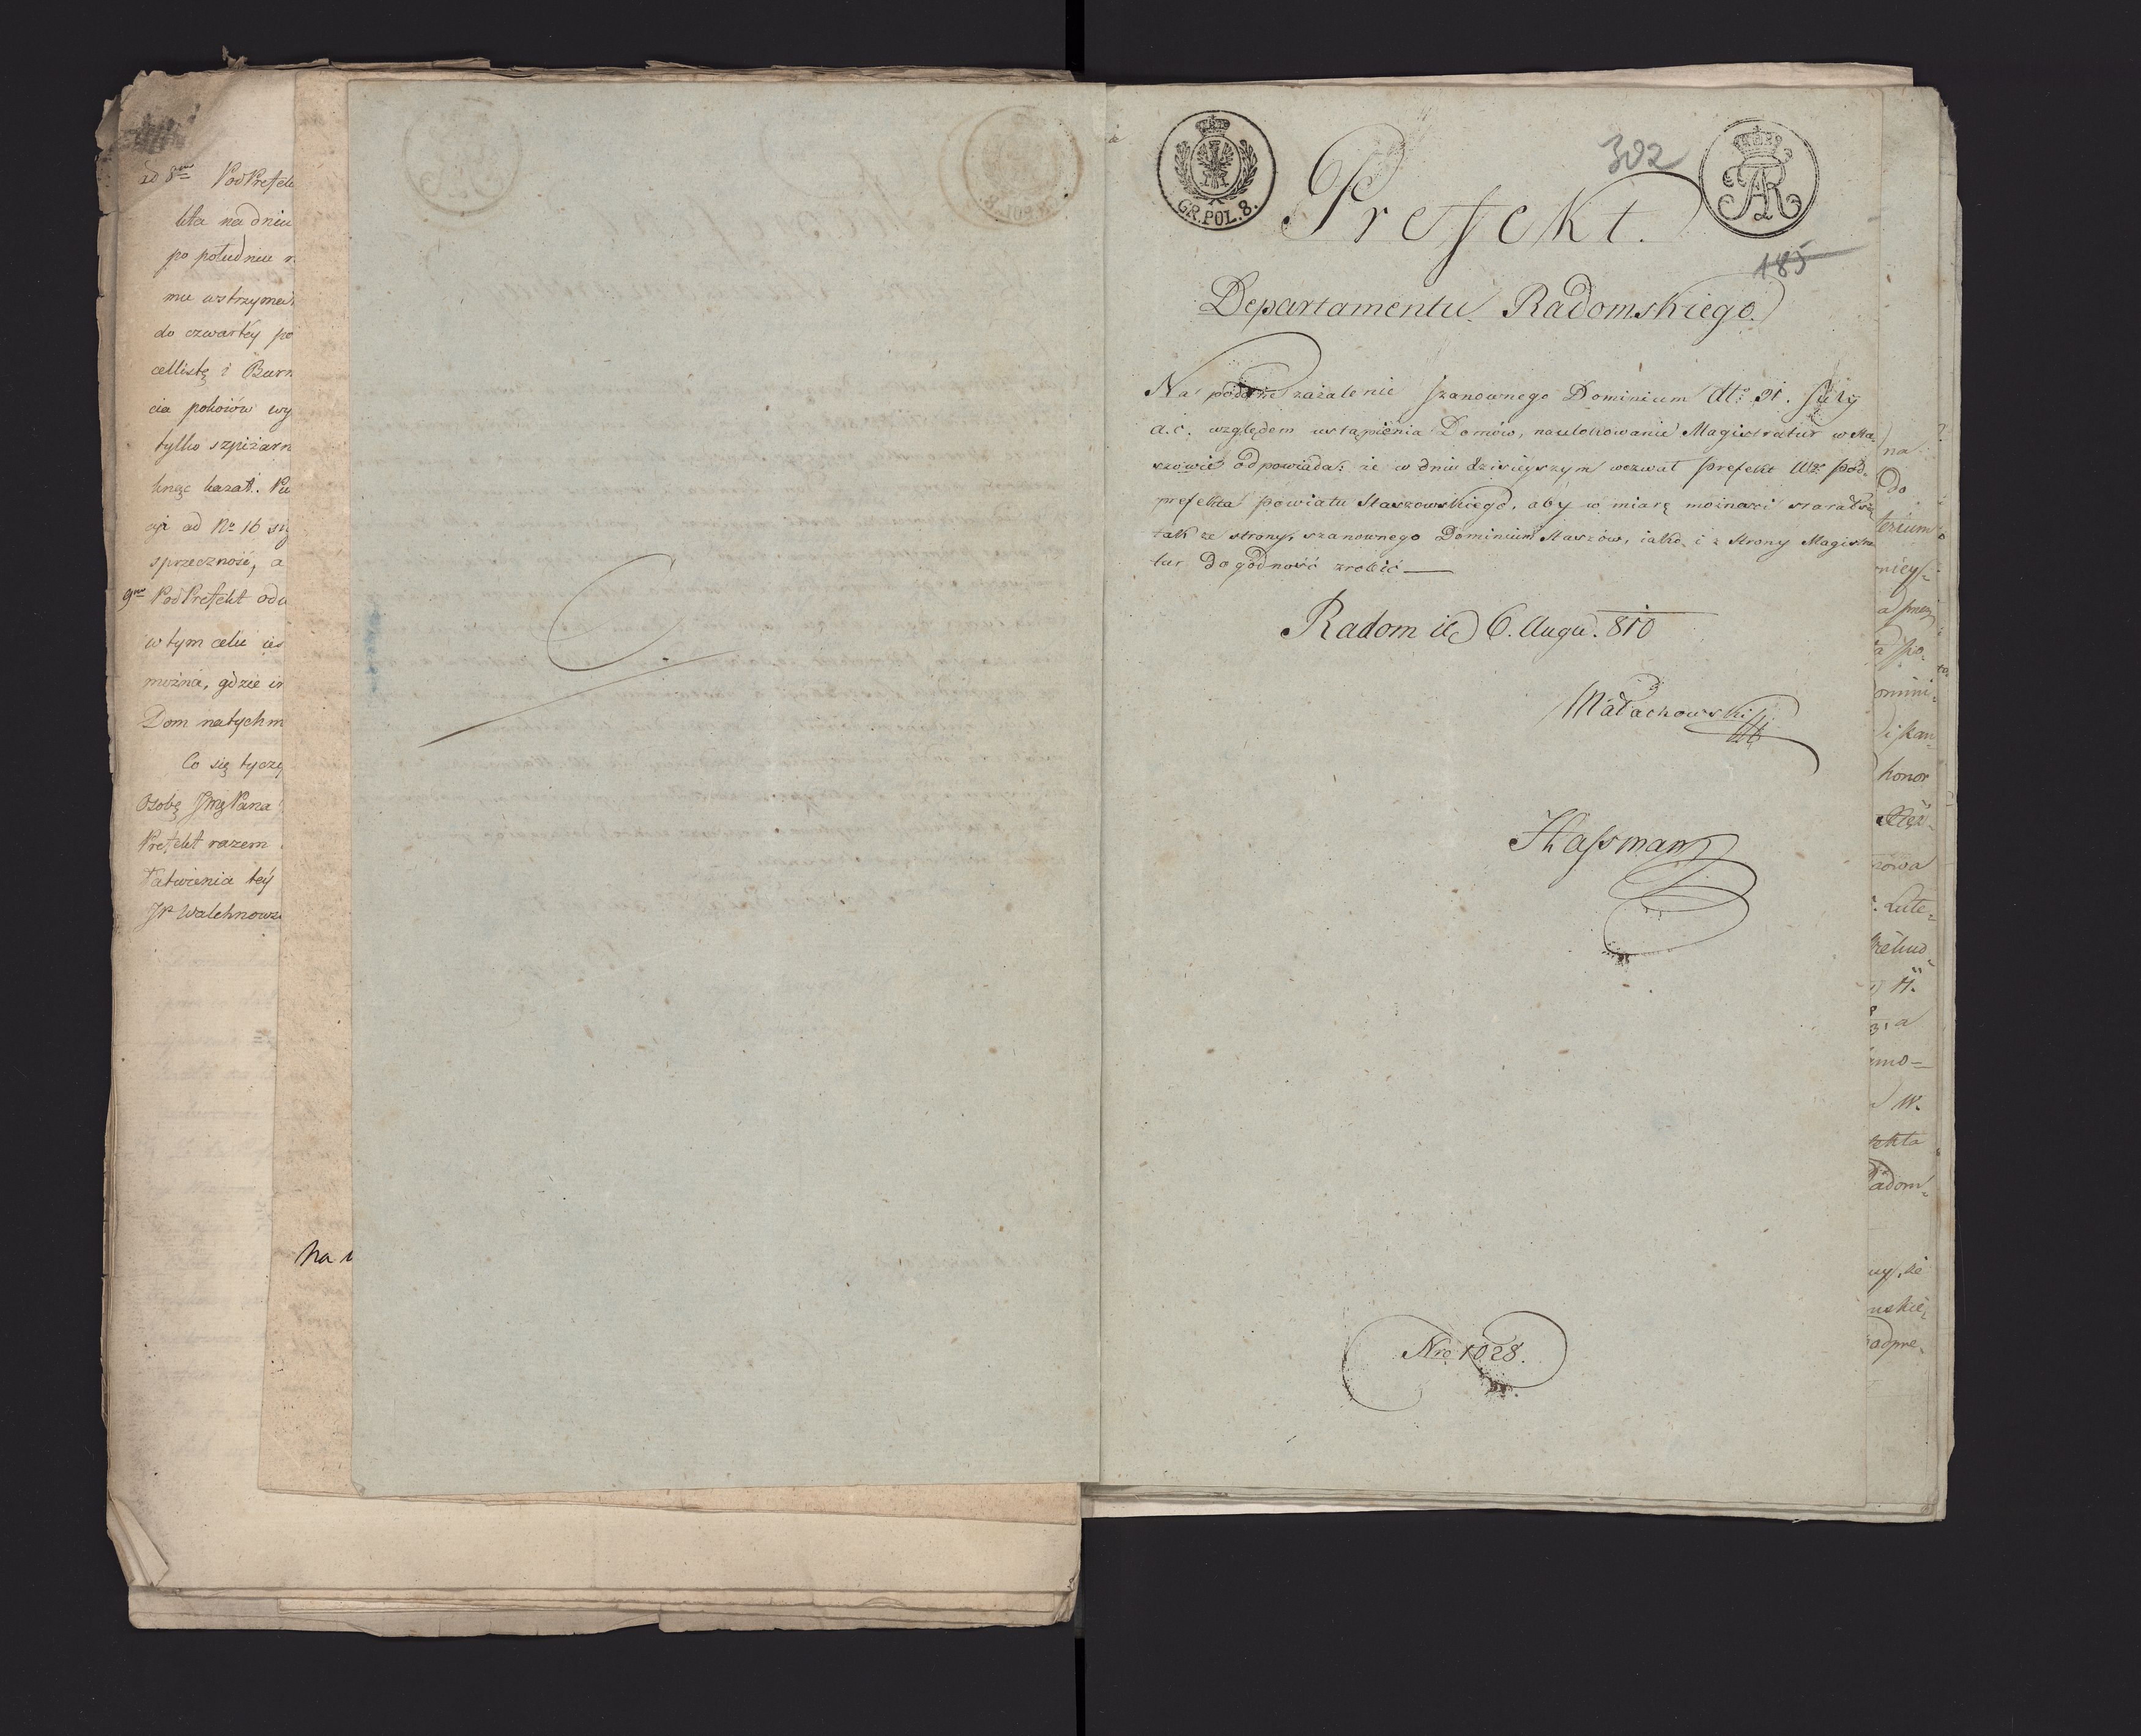 ad 8um PodPrefek
kta na dniu
po południu
mu wstrzyma
do czwartey po
cellistę i Burm
cia pokoiów wy
tylko szpiżarn
knąc kazał. Pu
cji ad No 16
sprzeczność, a
9no PodPrefekt odu
w tym celu
można, gdzie in
Dom natychm
Co się tyczy
Osobę JmgPana
Prefekt razem
łatwienia tey
JP Walchnows
Na
GR.POL.8.
302
Prefekt.
185
Departamentu Radomskiego.
Na podane zażalenie szanownego Dominium dto 31. July
a.c. względem ustąpienia Domów, naulokowanie Magistratur w Sta-
szowie odpowiada: że w dniu dzisieyszym wezwał Prefekt Wgo Pod-
prefekta Powiatu Staszowskiego, aby w miarę możności starał się
tak ze strony szanownego Dominium Staszów, iako i z Strony Magistra
tur dogodność zrobić —
Radom d 6. Augu. 810
Małachowski
Hassmann
Nro 1028.
na
Do
terium
niey-
omini-
i Kan-
honor
nowa
Lute-
H.
3, a
mo-
W.
fekta
Radom-
uy, że
uskie
adpre-